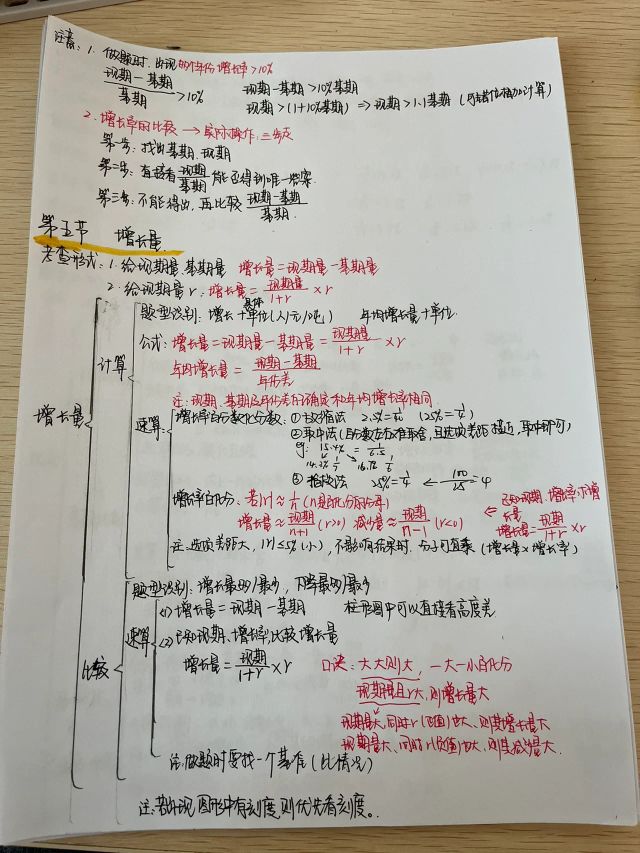 注意: 1. 做题时, 出现的年份增长率>10%
现期-基期/基期 >10% 现期-基期>10%基期
现期>(1+10%基期) ⇒ 现期>1.1基期 (错位相加计算)
2. 增长率的比较 → 实际操作: 三步走
第一步: 找出基期、现期
第二步: 直接看 现期/基期 能否得到唯一答案
第三步: 不能得出, 再比较 现期-基期/基期
第五节 增长量
考查形式: 1. 给现期量、基期量 增长量=现期量-基期量
2. 给现期量、r: 增长量=现期量/1+r ×r
题型识别: 增长+具体单位(人/元/吨) 年均增长量+单位
公式: 增长量=现期量-基期量=现期量/1+r ×r
计算
年均增长量=现期-基期/年份差
注: 现期、基期及年份差的确定和年均增长率相同
增长量
速算:
增长率百分数化分数: ①扩缩法 2.5%=1/40 (25%=1/4)
②取中法(百分数左右难取舍, 且选项差距接近, 取中即可)
eg: 15.4% ≈ 1/6.5
14.3% 1/7 16.7% 1/6
③拾级法 25%=1/4 ← 100/25=4
增长率百化分: 若|r|≈1/n (n是百化分的分母) ⇐ 已知现期、增长率求增长量
增长量≈现期/n+1 (r>0) 减少量≈现期/n-1 (r<0) 增长量=现期/1+r ×r
注: 选项差距大, |r|≤5%(小), 不影响结果时, 分子可直乘 (增长量×增长率)
题型识别: 增长最多/最少, 下降最多/最少
速算
(1) 增长量=现期-基期 柱形图中可以直接看高度差
(2) 已知现期、增长率, 比较增长量
比较
增长量=现期/1+r ×r 口诀: 大大则大, 一大一小百化分
现期量且r大, 则增长量大
现期量大, 同时r(正值)也大, 则其增长量大
现期量大, 同时r(负值)也大, 则其减少量大.
注: 做题时要找一个基准 (比情况)
注: 若出现图形中有刻度, 则优先看刻度。